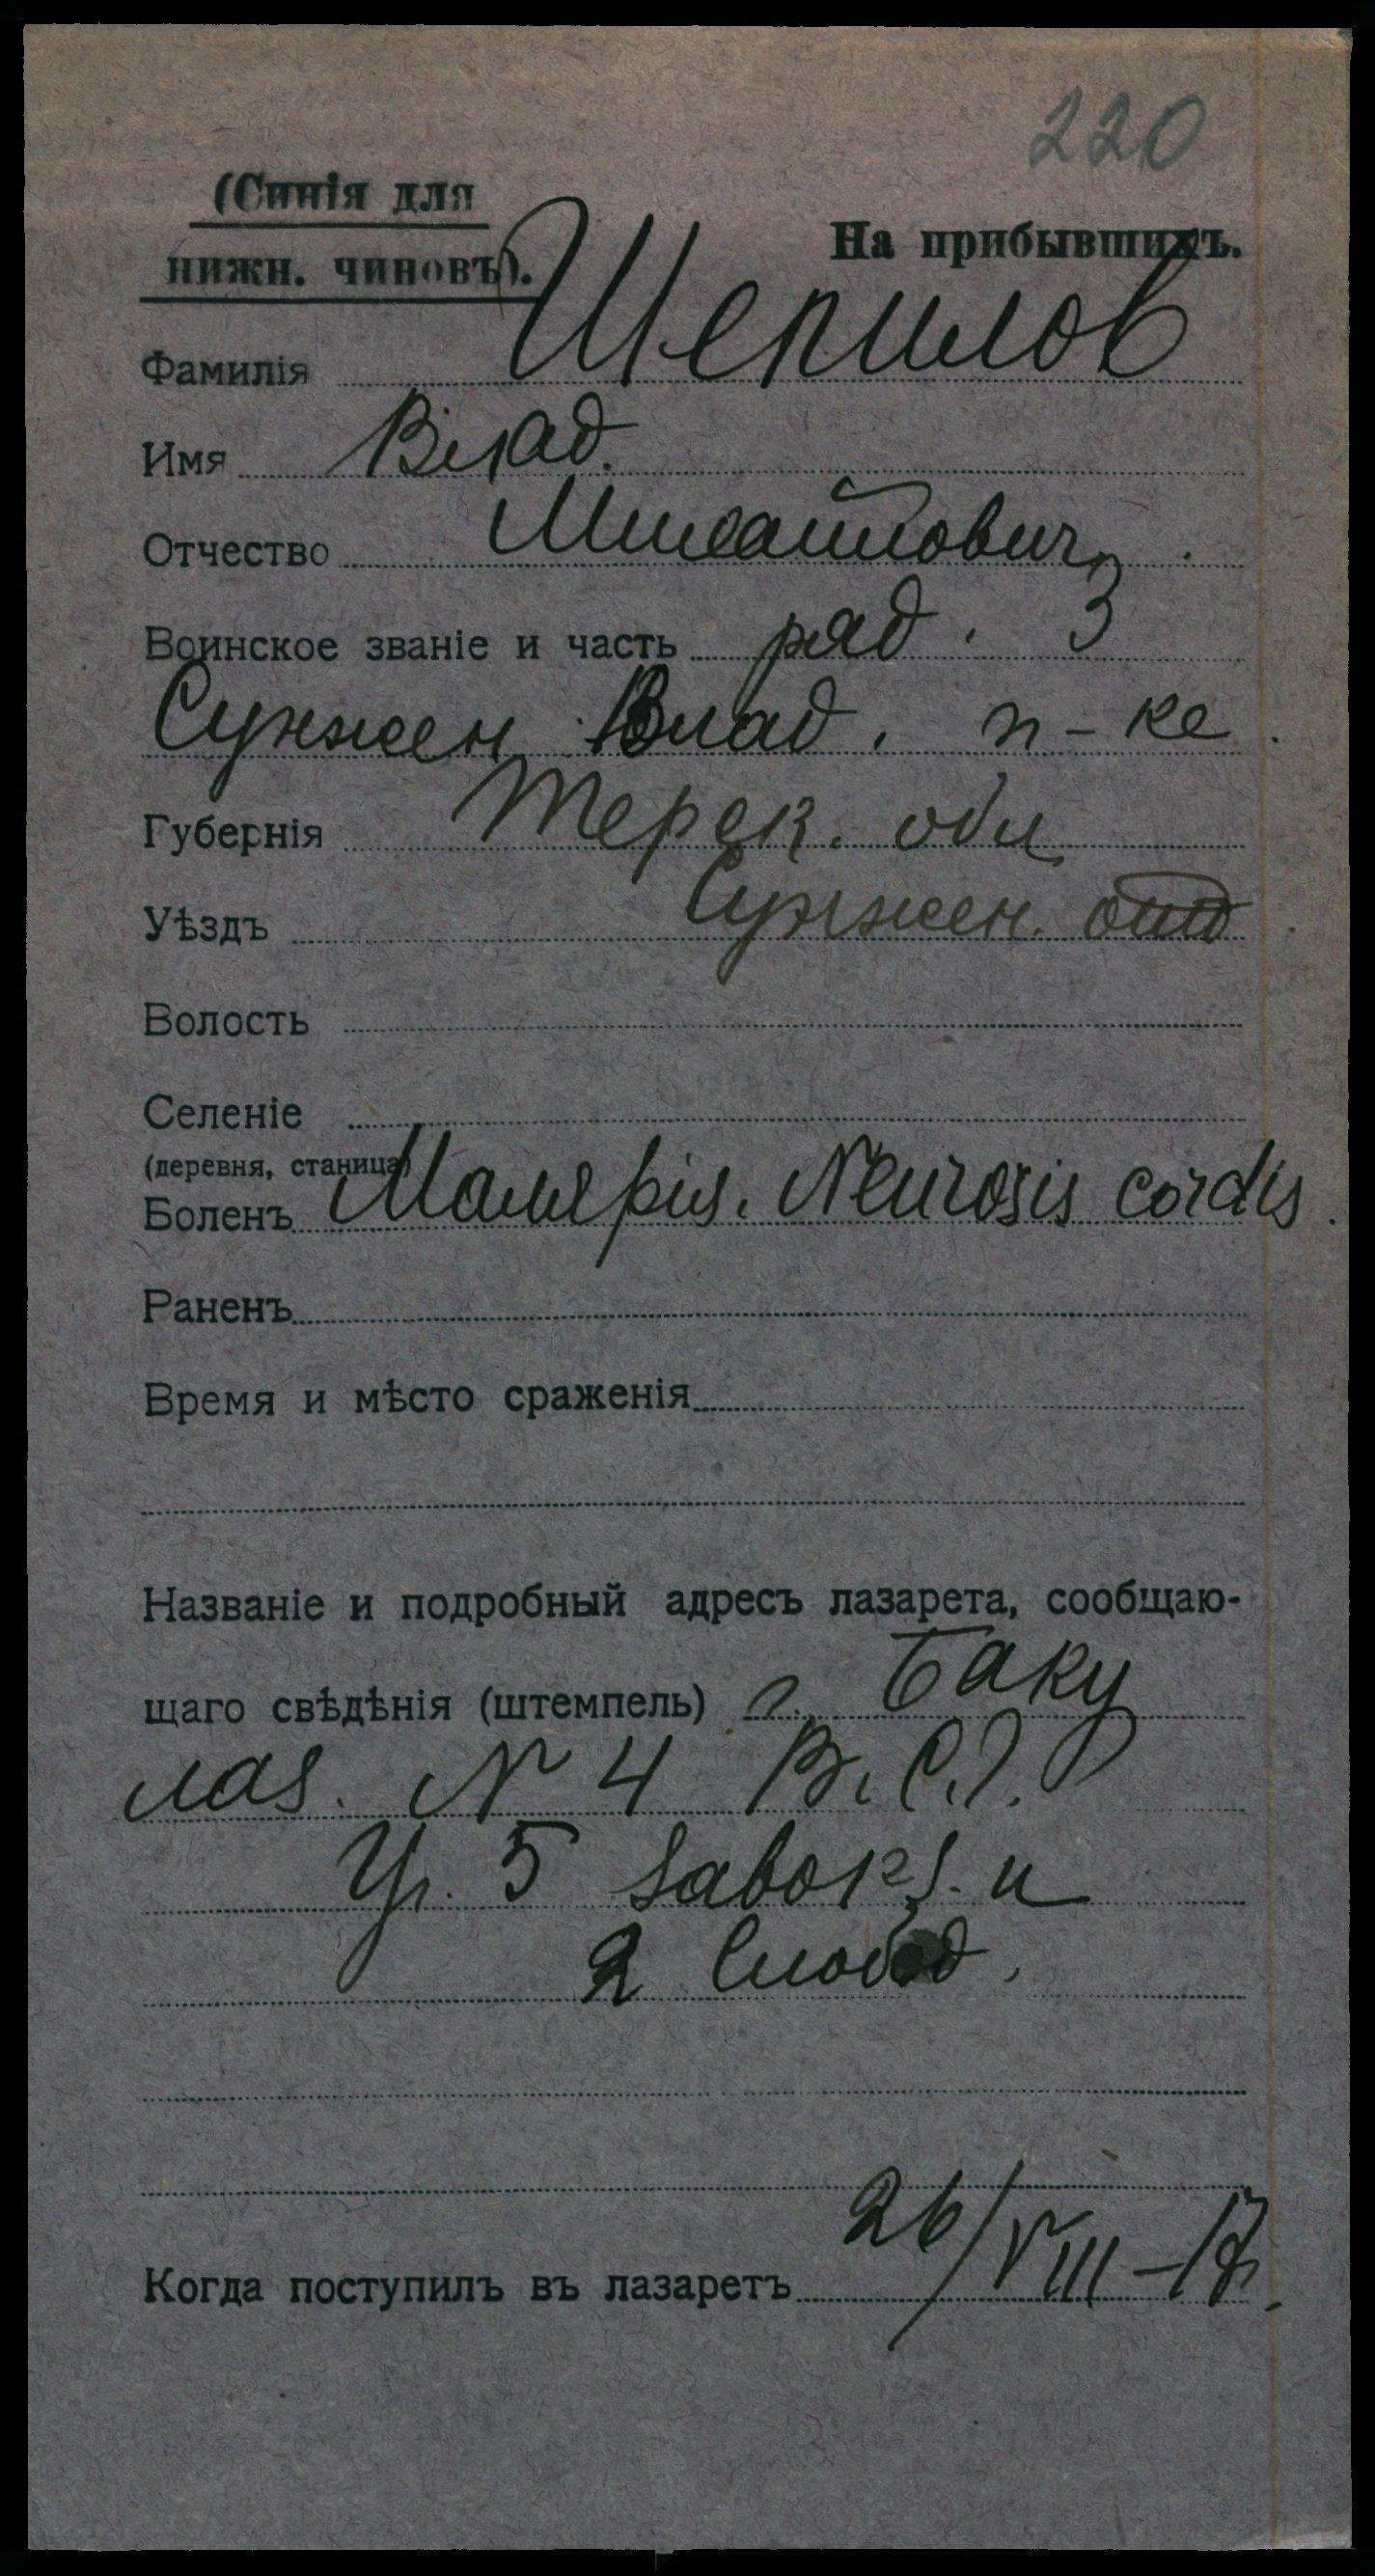 220
(Синія для
нижн. чиновъ).
На прибывшихъ.
Фамилія Шепилов
Имя Влад.
Отчество Михайлович
Воинское званіе и часть ряд. 3
Сунжен Влад. п-ка
Губернія Терек. обл
Уѣздъ Сунжен. отд
Волость
Селеніе
(деревня, станица)
Боленъ Малярія. Neurosis cordis.
Раненъ
Время и мѣсто сраженія
Названіе и подробный адресъ лазарета, сообщаю-
щаго свѣдѣнія (штемпель) г. Баку
лаз. № 4 В.С.Г.
Уг. 5 Завокз. и
2 Слобод.
Когда поступилъ въ лазаретъ 26/VIII-17.